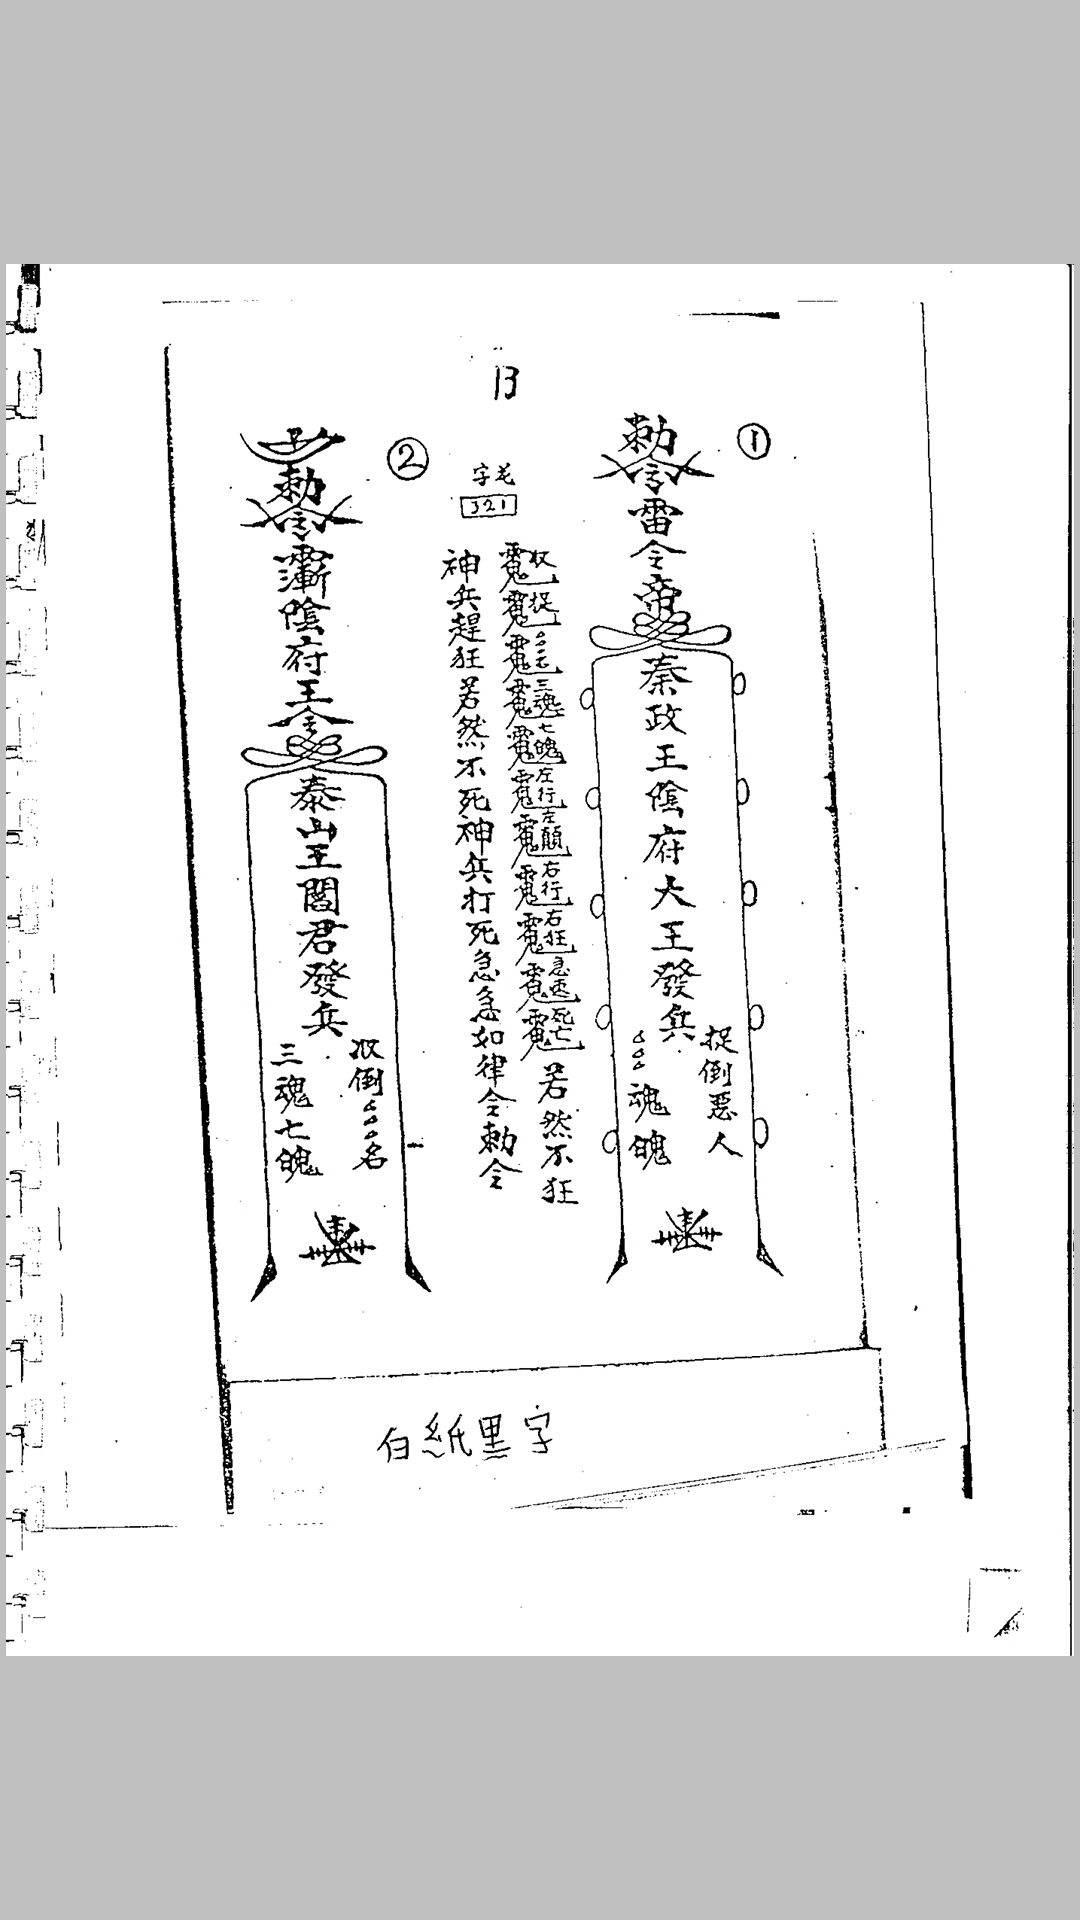 13
①
勅令雷令帝
秦政王陰府大王發兵
捉倒惡人
魂魄
字花
321
収捉三魂七魄左行左顛右行右狂急速死亡
若然不狂
神兵趕狂若然不死神兵打死急急如律令勅令
②
勅令
陰府王令
泰山王閻君發兵
収倒名
三魂七魄
白紙黑字